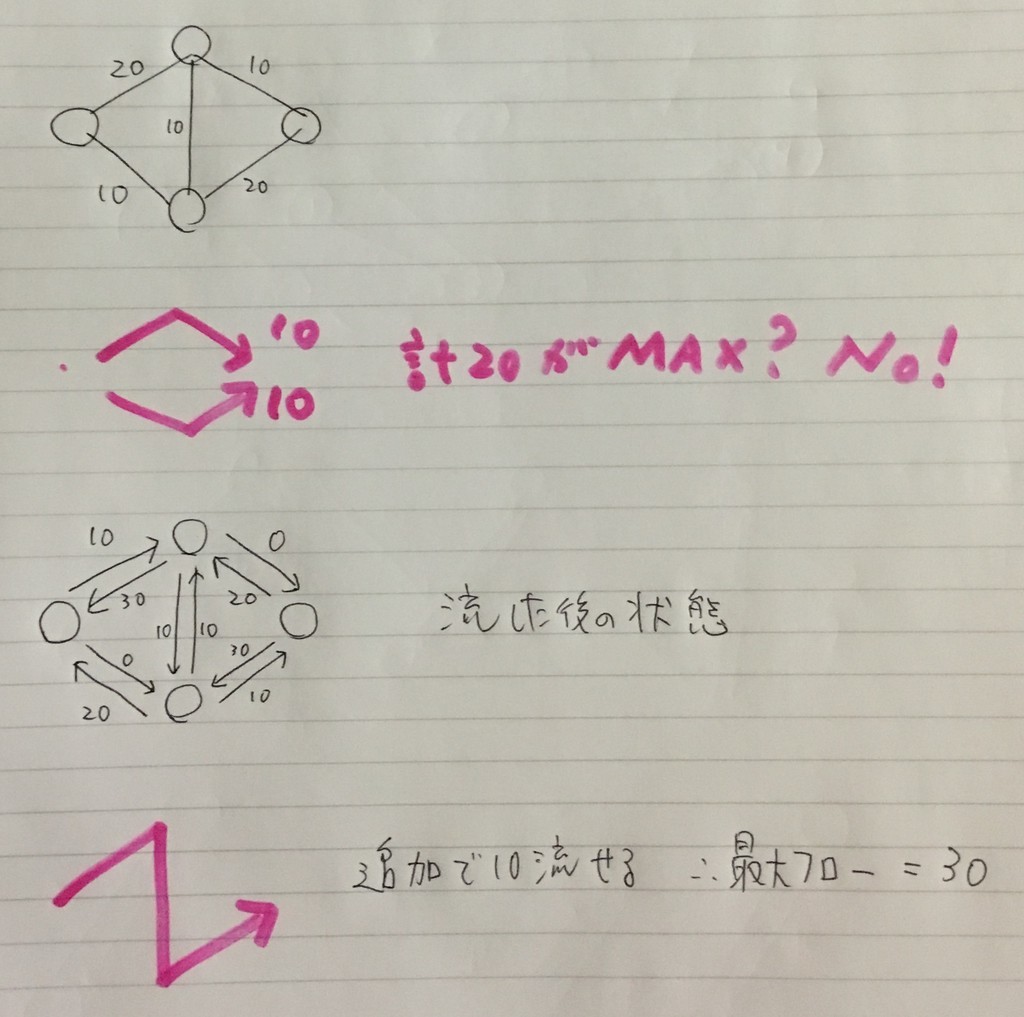 20 10
10
10 20
10 計20がMAX? No!
10
10 0
30 20
10 10
0 30
20 10
流した後の状態
追加で10流せる ∴最大フロー = 30